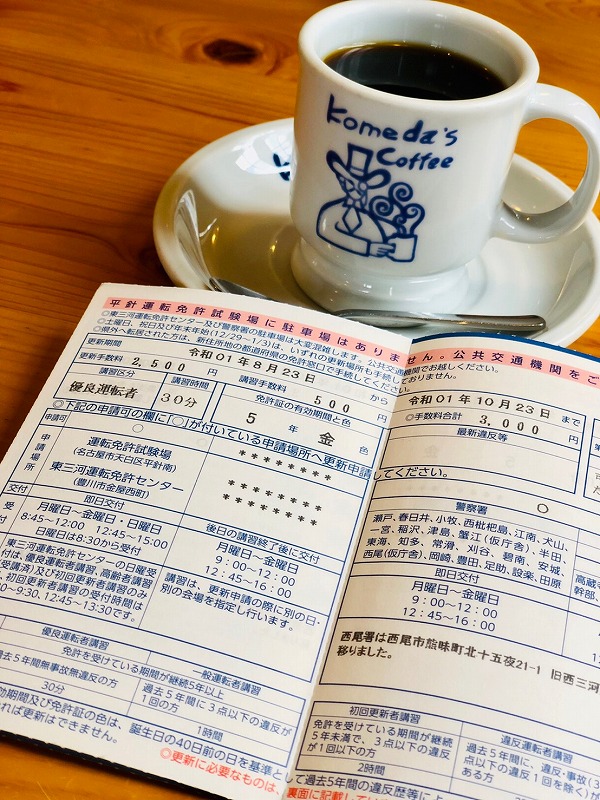 Komeda's
Coffee
平針運転免許試験場に駐車場はありません。公共交通機関をご
◎東三河運転免許センター及び警察署の駐車場は大変混雑します。公共交通機関でお越しください。
◎土曜日、祝日及び年末年始(12/29〜1/3)は、いずれの更新場所も手続しておりません。
◎県外へ転居された方は、新住所地の都道府県の免許窓口で手続してください。
更新期間 令和01年8月23日 から 令和01年10月23日 まで
更新手数料 2,500 円 講習手数料 500 円 ◎手数料合計 3,000 円
講習区分 優良運転者 講習時間 30分 免許証の有効期間と色 5 年 金 色 最新違反等
◎下記の申請可の欄に「○」が付いている申請場所へ更新申請してください。
申請可 ○
申請場所
運転免許試験場
(名古屋市天白区平針南)
東三河運転免許センター
(豊川市金屋西町)
*******
*******
*******
*******
交付 即日交付
月曜日〜金曜日・日曜日
8:45〜12:00 12:45〜15:00
日曜日は8:30から受付
後日の講習終了後に交付
月曜日〜金曜日
9:00〜12:00
12:45〜16:00
東三河運転免許センターの日曜受
付は、優良運転者講習、高齢者講習
受講済)及び初回更新者講習のみ
、初回更新者講習の受付時間は
0〜9:30、12:45〜13:30です。
講習は、更新申請の際に別の日・
別の会場を指定し行います。
優良運転者講習
免許を受けている期間が継続5年以上
過去5年間無事故無違反の方
30分
一般運転者講習
過去5年間に3点以下の違反が
1回の方
1時間
効期間及び免許証の色は、誕生日の40日前の日を基準として過去5年間の違反歴等によ
れば更新はできません。
◎更新に必要なものは、裏面に記載してい
○
警察署
瀬戸、春日井、小牧、西枇杷島、江南、犬山、
一宮、稲沢、津島、蟹江(仮庁舎)、半田、
東海、知多、常滑、刈谷、碧南、安城、
西尾(仮庁舎)、岡崎、豊田、足助、設楽、田原
高蔵寺
幹部、
即日交付
月曜日〜金曜日
9:00〜12:00
12:45〜16:00
西尾署は西尾市熊味町北十五夜21-1 旧西三河
移りました。
初回更新者講習
免許を受けている期間が継続
5年未満で、3点以下の違反
が1回以下の方
2時間
違反運転者講習
過去5年間に、違反・事故(3
点以下の違反1回を除く)が
ある方